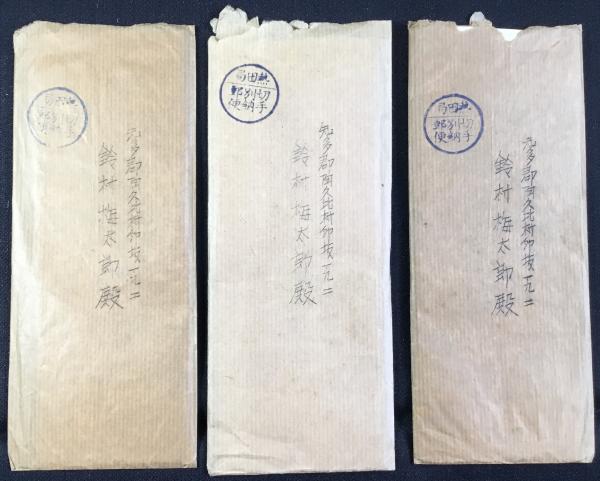 熱田局
切手別納郵便
知多郡阿久比村卯坂一九二
鈴村梅太郎殿
熱田局
切手別納郵便
知多郡阿久比村卯坂一九二
鈴村梅太郎殿
熱田局
切手別納郵便
知多郡阿久比村卯坂一九二
鈴村梅太郎殿